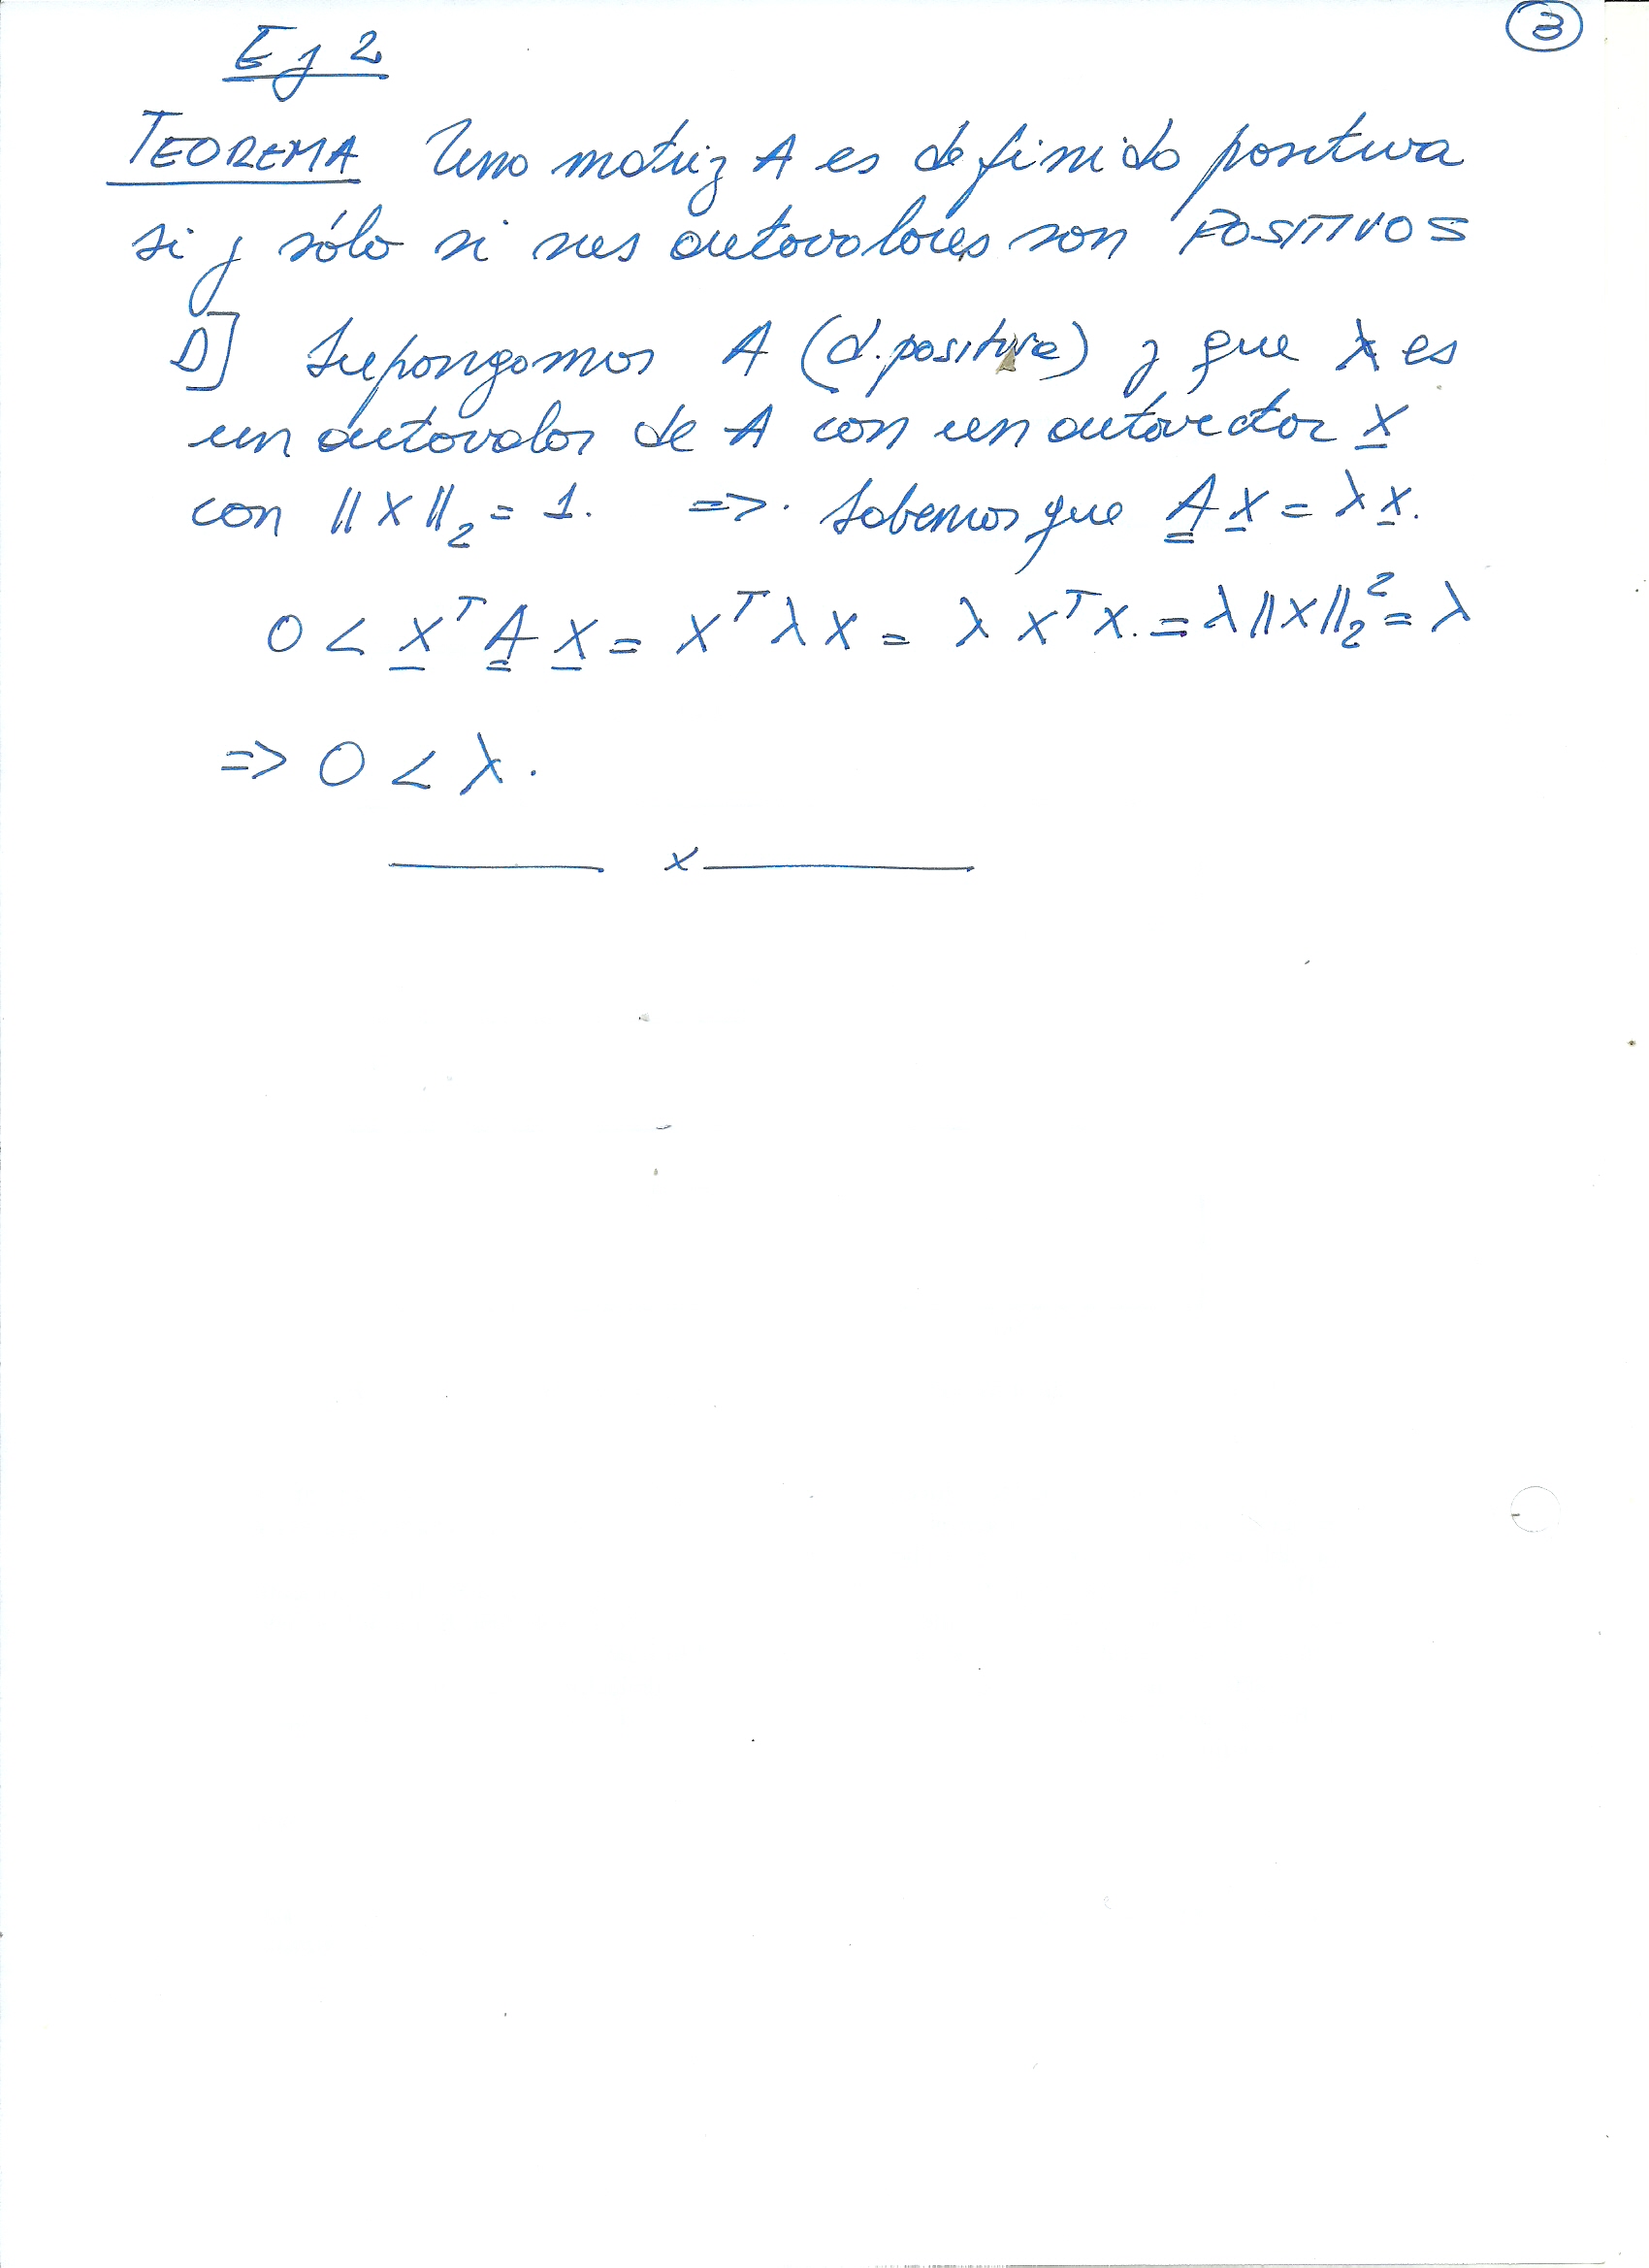 3
Ej 2
TEOREMA Una matriz A es definida positiva
si y sólo si sus autovalores son POSITIVOS
D] Supongamos A (d. positiva) y que λ es
un autovalor de A con un autovector x
con ||x||₂ = 1. => . Sabemos que A x = λ x.
0 < xᵀ A x = xᵀ λ x = λ xᵀ x. = λ ||x||₂² = λ
=> 0 < λ.
x